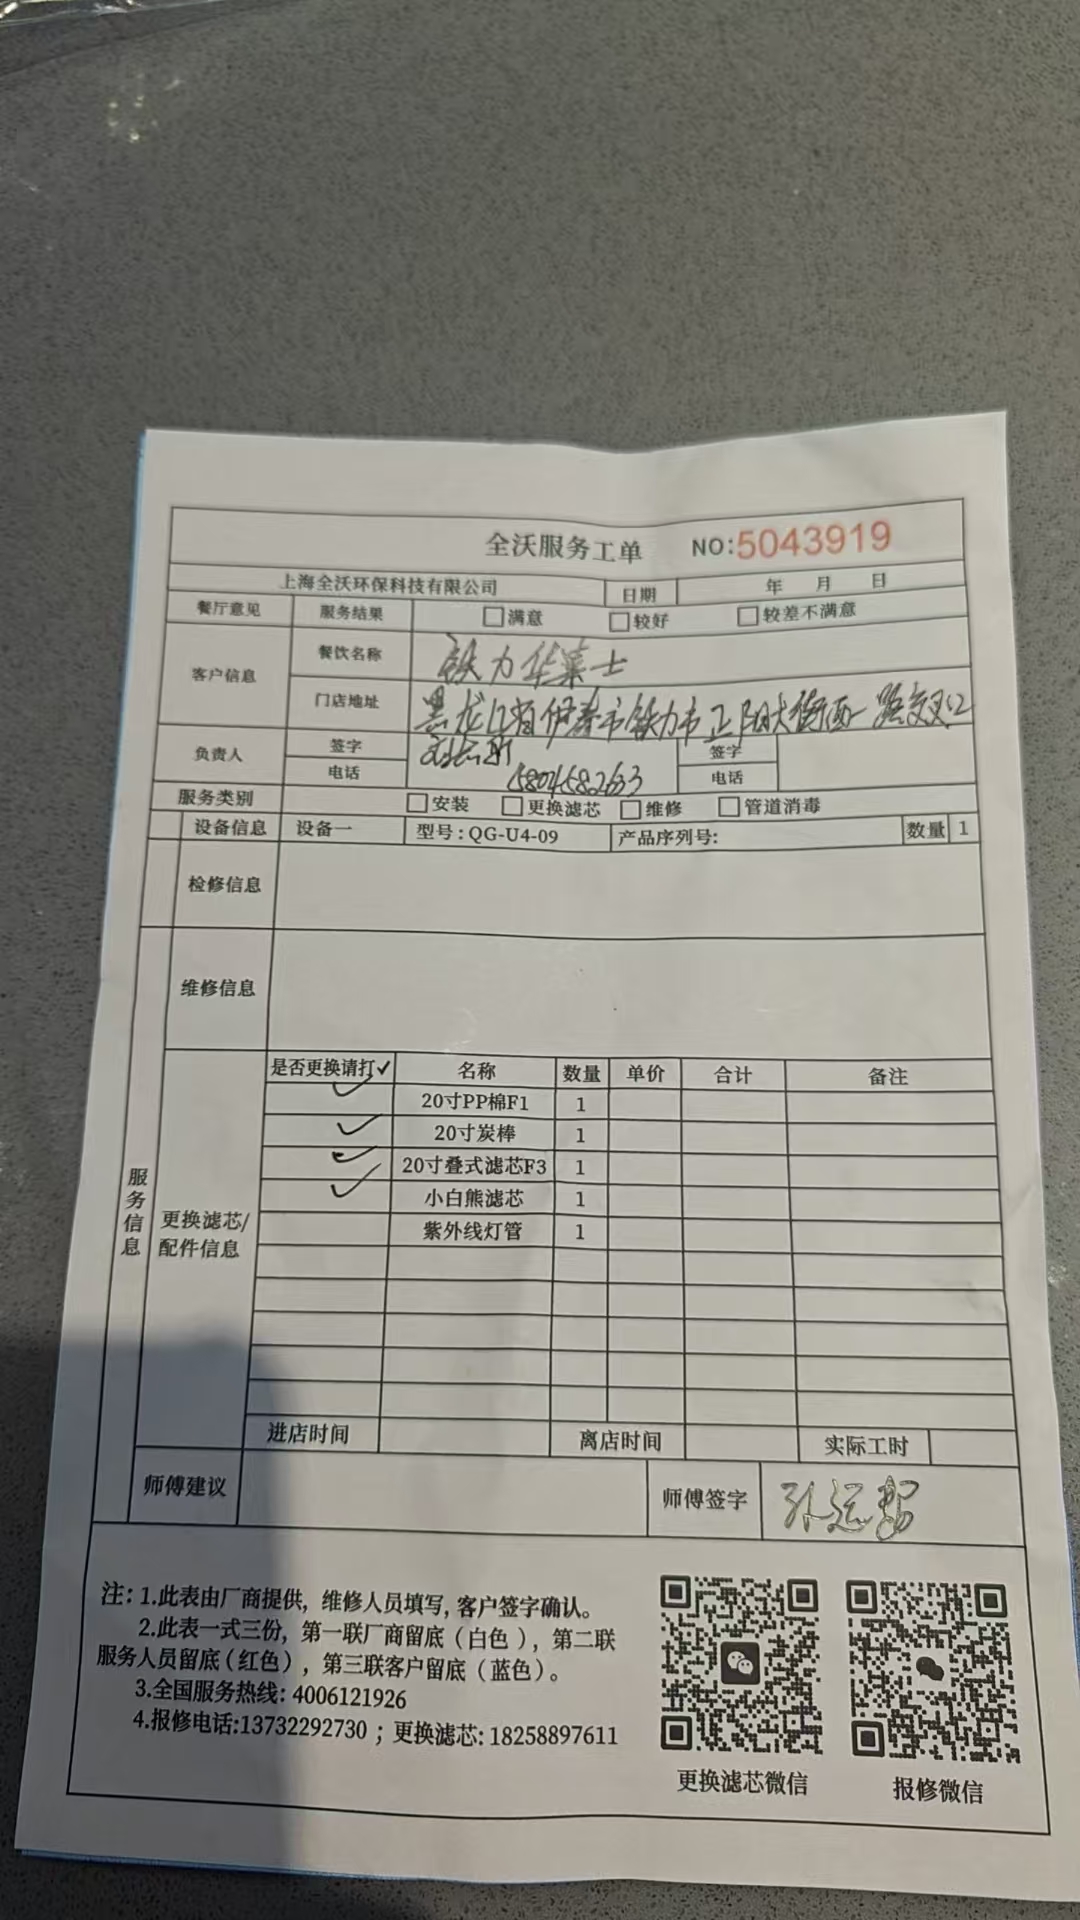 全沃服务工单 NO:5043919
上海全沃环保科技有限公司 日期 年 月 日
餐厅意见 服务结果 满意 较好 较差不满意
客户信息 餐饮名称 铁力华莱士
门店地址 黑龙江省伊春市铁力市正阳大街西一路交叉口
负责人 签字 签字
电话 15804582633 电话
服务类别 安装 更换滤芯 维修 管道消毒
设备信息 设备一 型号:QG-U4-09 产品序列号: 数量 1
检修信息
维修信息
服务信息
更换滤芯/
配件信息
是否更换请打✓ 名称 数量 单价 合计 备注
✓ 20寸PP棉F1 1
✓ 20寸炭棒 1
✓ 20寸叠式滤芯F3 1
✓ 小白熊滤芯 1
紫外线灯管 1
进店时间 离店时间 实际工时
师傅建议 师傅签字
注: 1.此表由厂商提供, 维修人员填写, 客户签字确认。
2.此表一式三份, 第一联厂商留底(白色), 第二联
服务人员留底(红色), 第三联客户留底(蓝色)。
3.全国服务热线: 4006121926
4.报修电话:13732292730 ; 更换滤芯: 18258897611
更换滤芯微信 报修微信